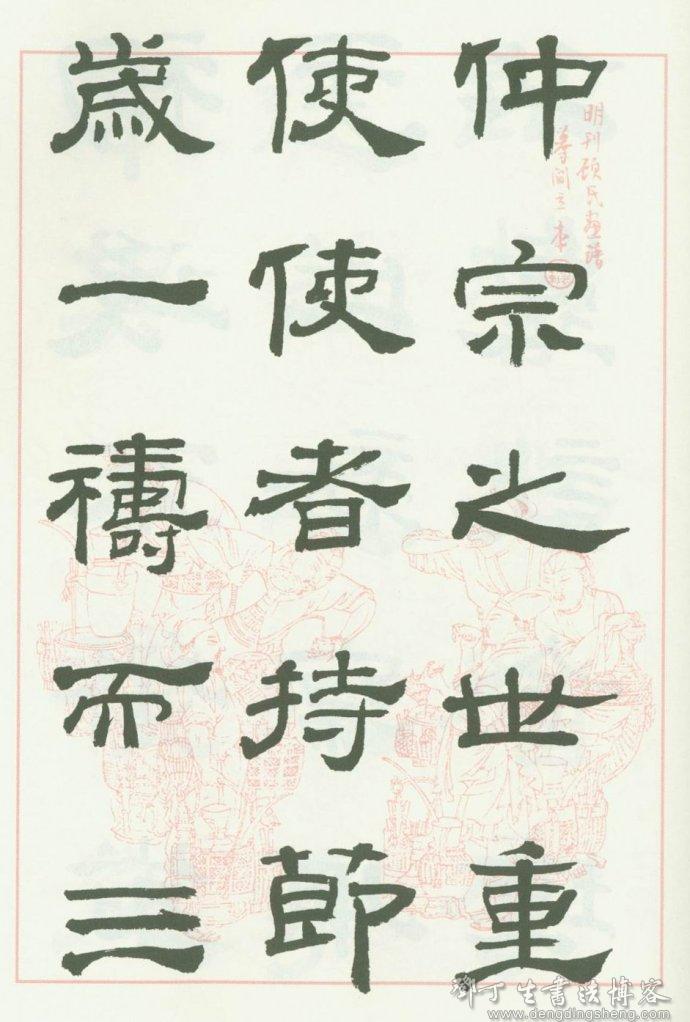 仲宗之世重
使使者持節
歲一禱而三
明刊顾氏画谱
摹阎立本
邓丁生书法博客
www.dengdingsheng.com